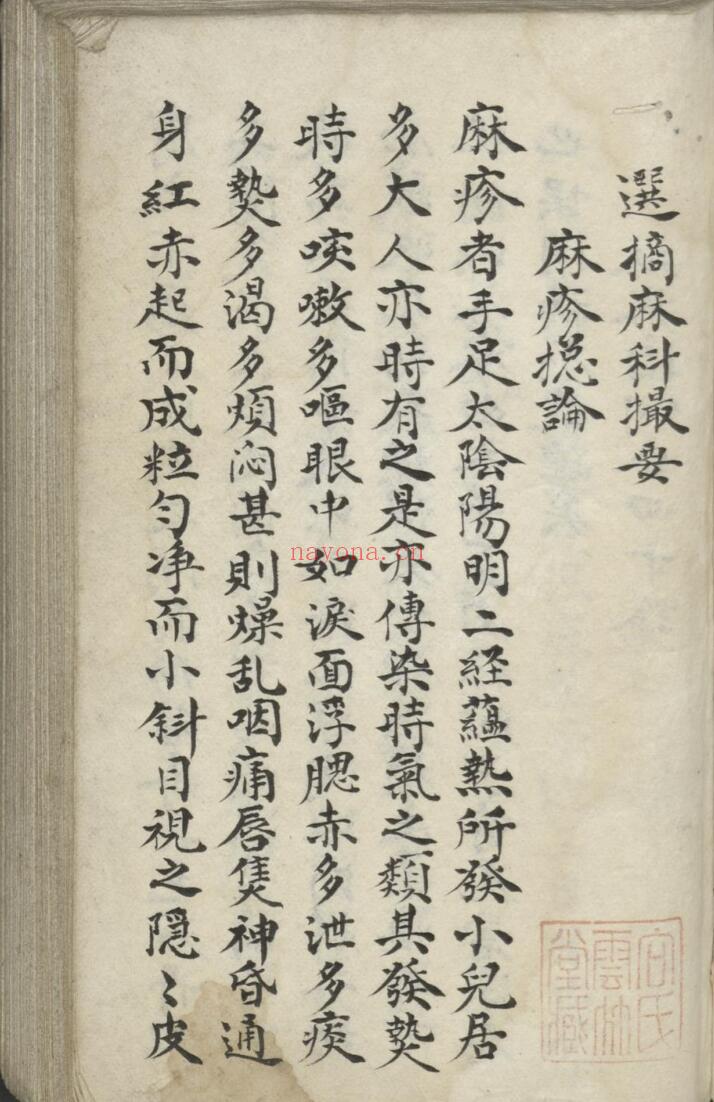 選摘麻科撮要
麻疹揔論
麻疹者手足太陰陽明二経蘊熱所發小兒居
多大人亦時有之是亦傳染時氣之類其發熱
時多咳嗽多嘔眼中如淚面浮腮赤多泄多痰
多熱多渴多煩悶甚則燥乱咽痛唇焦神昏通
身紅赤起而成粒勻净而小斜目視之隱〻皮
宫氏
雲林
堂藏
nayona.cn